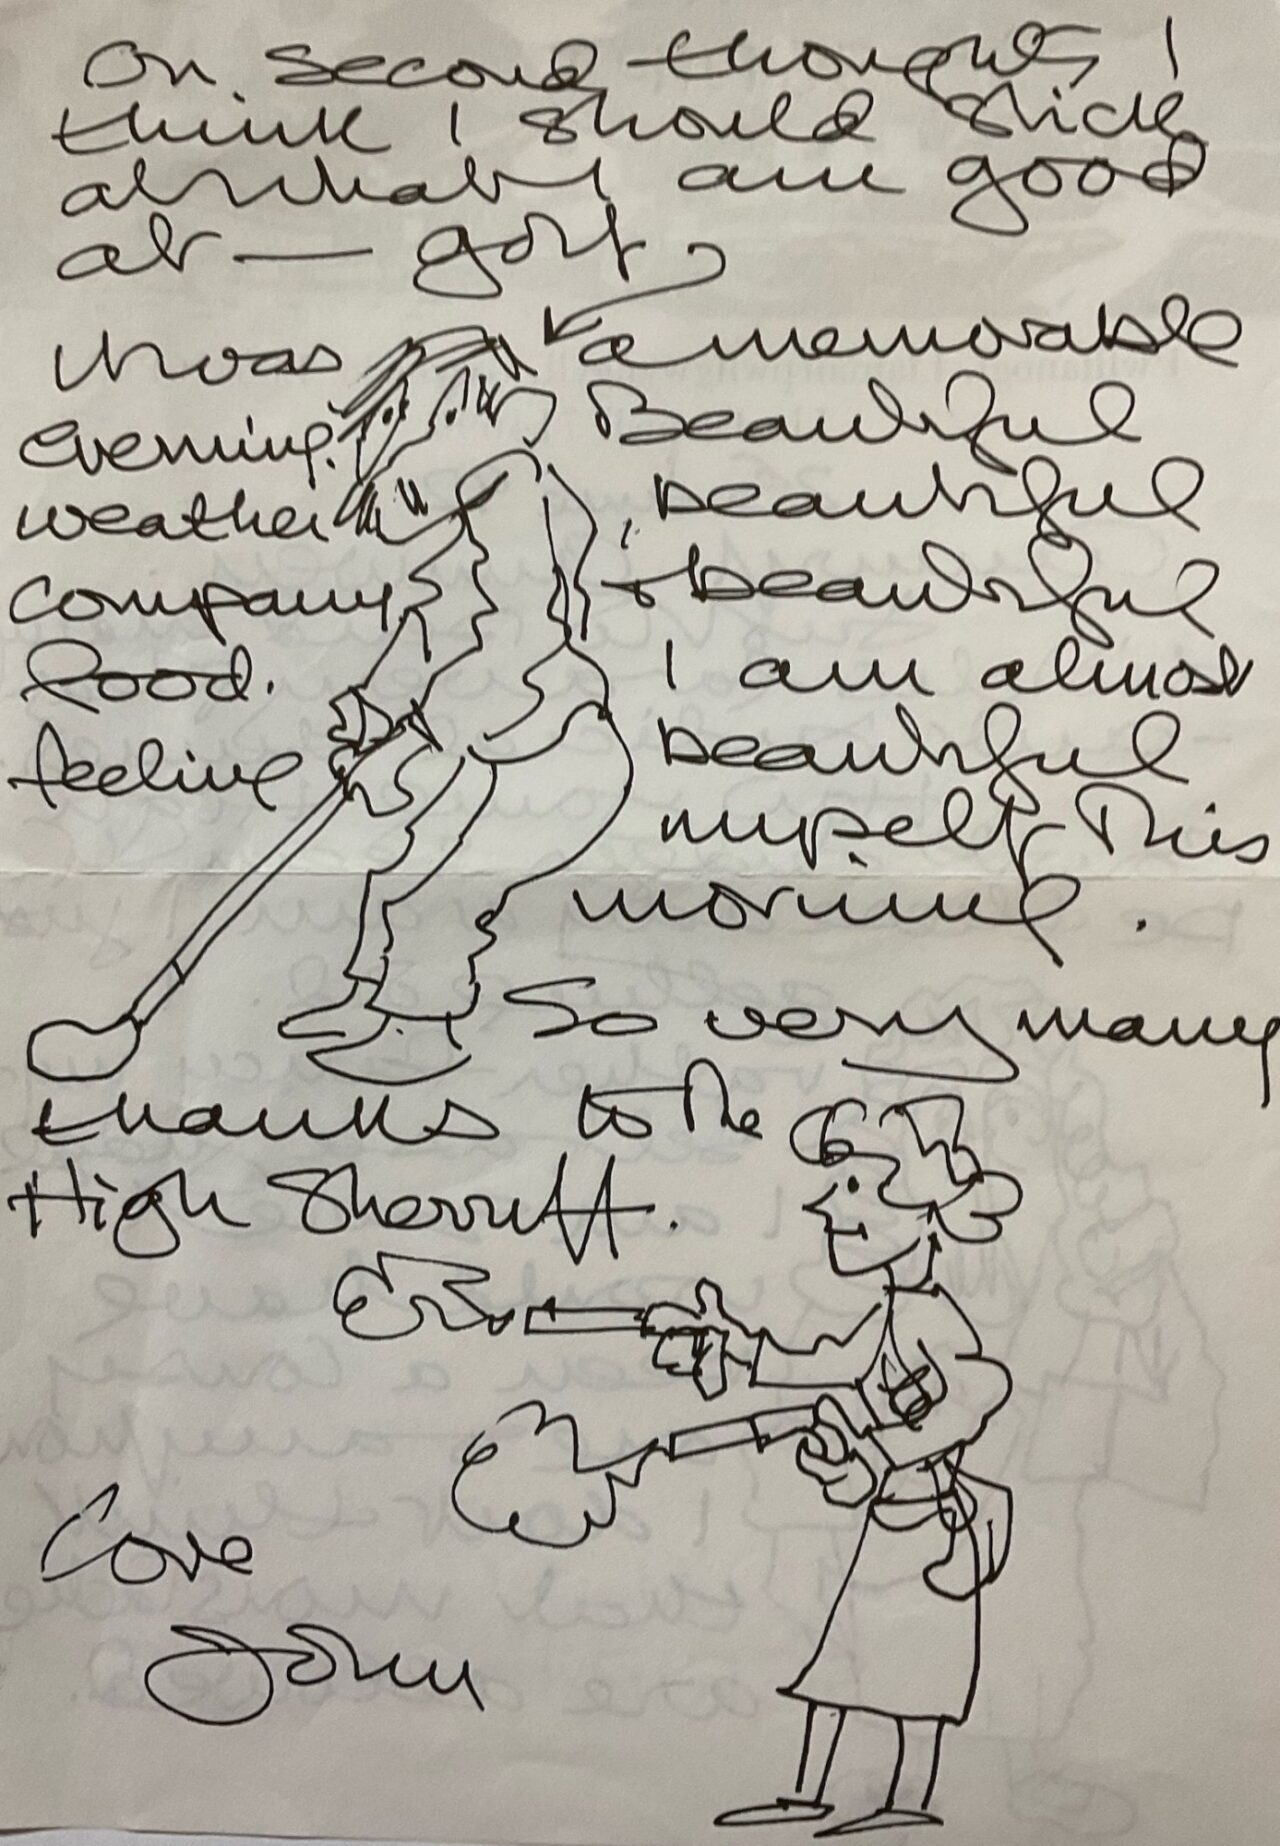 On second thoughts I
think I should stick
at what I am good
at — golf
It was a memorable
evening. Beautiful
weather, beautiful
company & beautiful
food. I am almost
feeling beautiful
myself this
morning.
So very many
thanks to the
High Sherriff.
Love
John